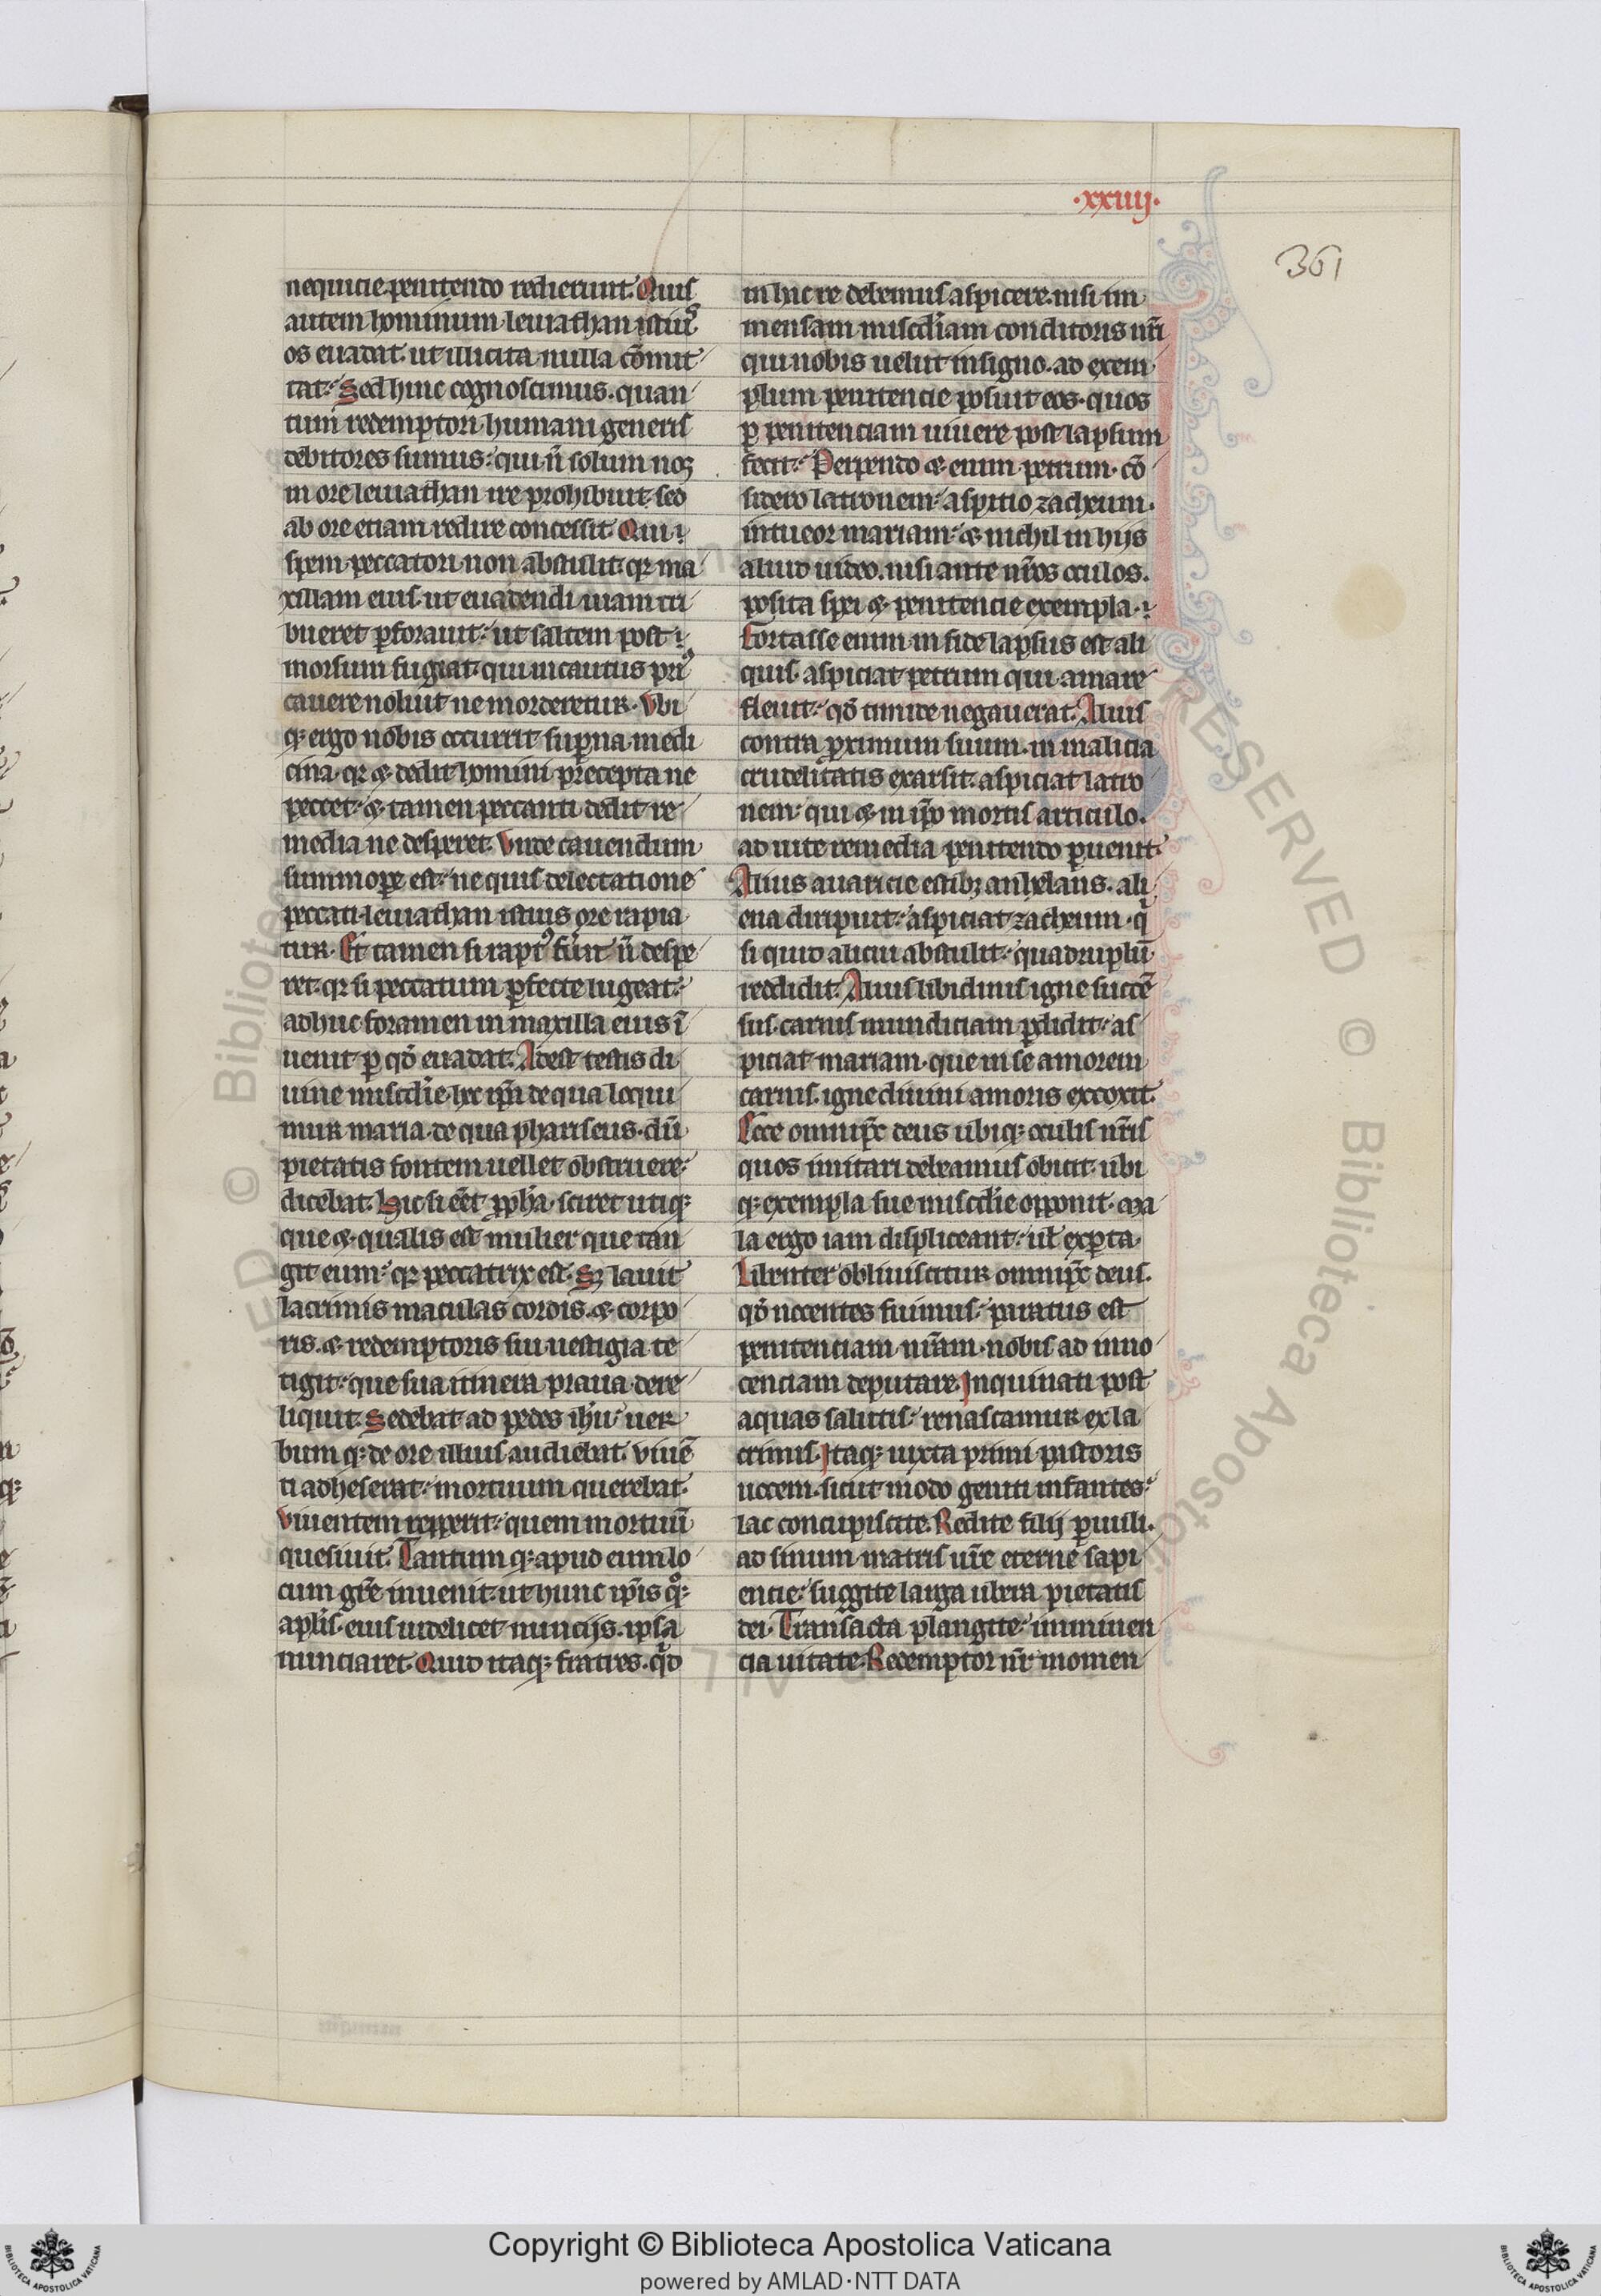 ·xxiiij·
361
nequicie penitendo redierunt. Quis
autem hominum leuiathan istiꝰ
os euadat. ut illicita nulla cōmit
tat. Sed hinc cognoscimus. quan
tum redemptori humani generis
debitores sumus. qui n̄ solum nos
in ore leuiathan ire prohibuit. sed
ab ore etiam redire concessit. Qui
spem peccatori non abstulit. qꝛ ma
xillam eius ut euadendi uiam tri
bueret ꝑforauit. ut saltem post
morsum fugiat. qui incautus priꝰ
cauere noluit ne morderetur. Vbi
qꝫ ergo nobis occurrit suꝑna medi
cina. qꝛ ⁊ dedit homini p̄cepta ne
peccet. ⁊ tamen peccanti dedit re
media ne desperet. Vnde cauendum
summope est. ne quis delectatione
peccati leuiathan istius ore rapia
tur. Et tamen si raptꝰ fu͛it n̄ despe
ret. qꝛ si peccatum ꝑfecte lugeat.
adhuc foramen in maxilla eius ī
uenit ꝑ qḋ euadat. Adest testis di
uine misc̄die hec ip̄a de qua loqui
mur maria. de qua phariseus. dū
pietatis fontem uellet obstruere.
dicebat. Hic si eēt ꝓph̄a. sciret utiqꝫ
que ⁊ qualis est mulier que tan
git eum. qꝛ peccatrix est. Sꝫ lauit
lacrimis maculas cordis. ⁊ corpo
ris. ⁊ redemptoris sui uestigia te
tigit. que sua itinera praua dere
liquit. Sedebat ad pedes ih̄u. uer
bum qꝫ de ore illius audiebat. viuē
ti adheserat. mortuum querebat.
Viuentem repperit. quem mortuū
quesiuit. Tantum qꝫ apud eum lo
cum gr̄e inuenit. ut hunc ip̄is qͦqꝫ
aplīs. eius uidelicet nuncijs. ipsa
nunciaret. Quid itaqꝫ fratres. q̄d
in hac re debemus aspicere. nisi im
mensam misc̄diam conditoris nr̄i
qui nobis uelut in signo. ad exem
plum penitencie posuit eos. quos
ꝑ penitenciam uiuere post lapsum
fecit. Perpendo ⁊ enim petrum. cō
sidero latronem. aspitio zacheum.
intueor mariam. ⁊ nichil in hijs
aliud uideo. nisi ante nr̄os oculos.
posita spei ⁊ penitencie exempla.
Fortasse enim in fide lapsus est ali
quis. aspiciat petrum qui amare
fleuit. qḋ timide negauerat. Alius
contra ꝓximum suum. in malicia
crudelitatis exarsit. aspiciat latro
nem. qui ⁊ in ip̄o mortis articulo.
ad uite remedia penitendo ꝑuenit.
Alius auaricie estibꝫ anhelans. ali
ena diripuit. aspiciat zacheum. q̇
si quid alicui abstulit. quadruplū
reddidit. Alius libidinis igne succē
sus. carnis mundiciam ꝑdidit. as
piciat mariam. que in se amorem
carnis. igne diuini amoris excoxit.
Ecce omnip̄c deus ubiqꝫ oculis nr̄is
quos imitari debeamus obicit. ubi
qꝫ exempla sue misc̄die opponit. Ma
la ergo iam displiceant. ul̄ exꝑta.
Libenter obliuiscitur omnip̄c deus.
qḋ nocentes fuimus. paratus est
penitenciam nr̄am. nobis ad inno
cenciam deputare. Inquinati post
aquas salutis. renascamur ex la
crimis. Itaqꝫ iuxta primi pastoris
uocem. sicut modo geniti infantes.
lac concupiscite. Redite filij ꝑuuli.
ad sinum matris ur̄e eterne sapi
encie. suggite larga ubera pietatis
dei. Transacta plangite. iminen
cia uitate. Redemptor nr̄ momen
Copyright © Biblioteca Apostolica Vaticana
powered by AMLAD·NTT DATA